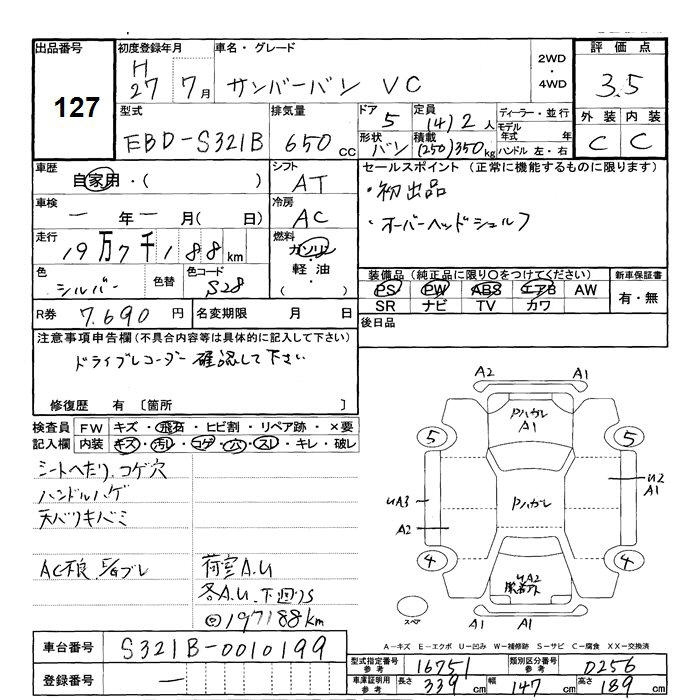 出品番号 127
初度登録年月 H27 7月
車名・グレード サンバーバン VC
2WD・4WD
評価点 3.5
外装 C 内装 C
型式 EBD-S321B
排気量 650 cc
ドア 5
形状 バン
定員 (4)2人
積載 (250)350kg
ディーラー・並行
モデル年式 年
ハンドル 左・右
車歴 自家用・( )
シフト AT
セールスポイント(正常に機能するものに限ります)
・初出品
・オーバーヘッドシェルフ
車検 一年一月(日)
冷房 AC
走行 19万7千188km
燃料 ガソリン・軽油・( )
色 シルバー 色替 色コード S28
装備品(純正品に限り○をつけてください)
PS PW ABS エアB AW
SR ナビ TV カワ
新車保証書 有・無
R券 7.690円
名変期限 月 日
後日品
注意事項申告欄(不具合内容等は具体的に記入して下さい)
ドライブレコーダー確認して下さい
修復歴 有 〔箇所 〕
検査員記入欄
FW キズ・飛石・ヒビ割・リペア跡・×要
内装 キズ・汚レ・コゲ・穴・スレ・キレ・破レ
シートヘたり、コゲ穴
ハンドルハゲ
天バリキバミ
AC不良 E/Gブレ
荷室A.U
各A.U.下廻りS
◎197188km
A2 A1
Pハガレ
A1
5 5
Pハガレ
UA3
A2
U2
A1
4 4
UA2
A1 A1
スペア
A-キズ E-エクボ U-凹み W-補修跡 S-サビ C-腐食 XX-交換済
車台番号 S321B-0010199
登録番号 一
型式指定番号 参考 16751
類別区分番号 参考 0256
車庫証明用 参考 長さ 339cm 幅 147cm 高さ 189cm